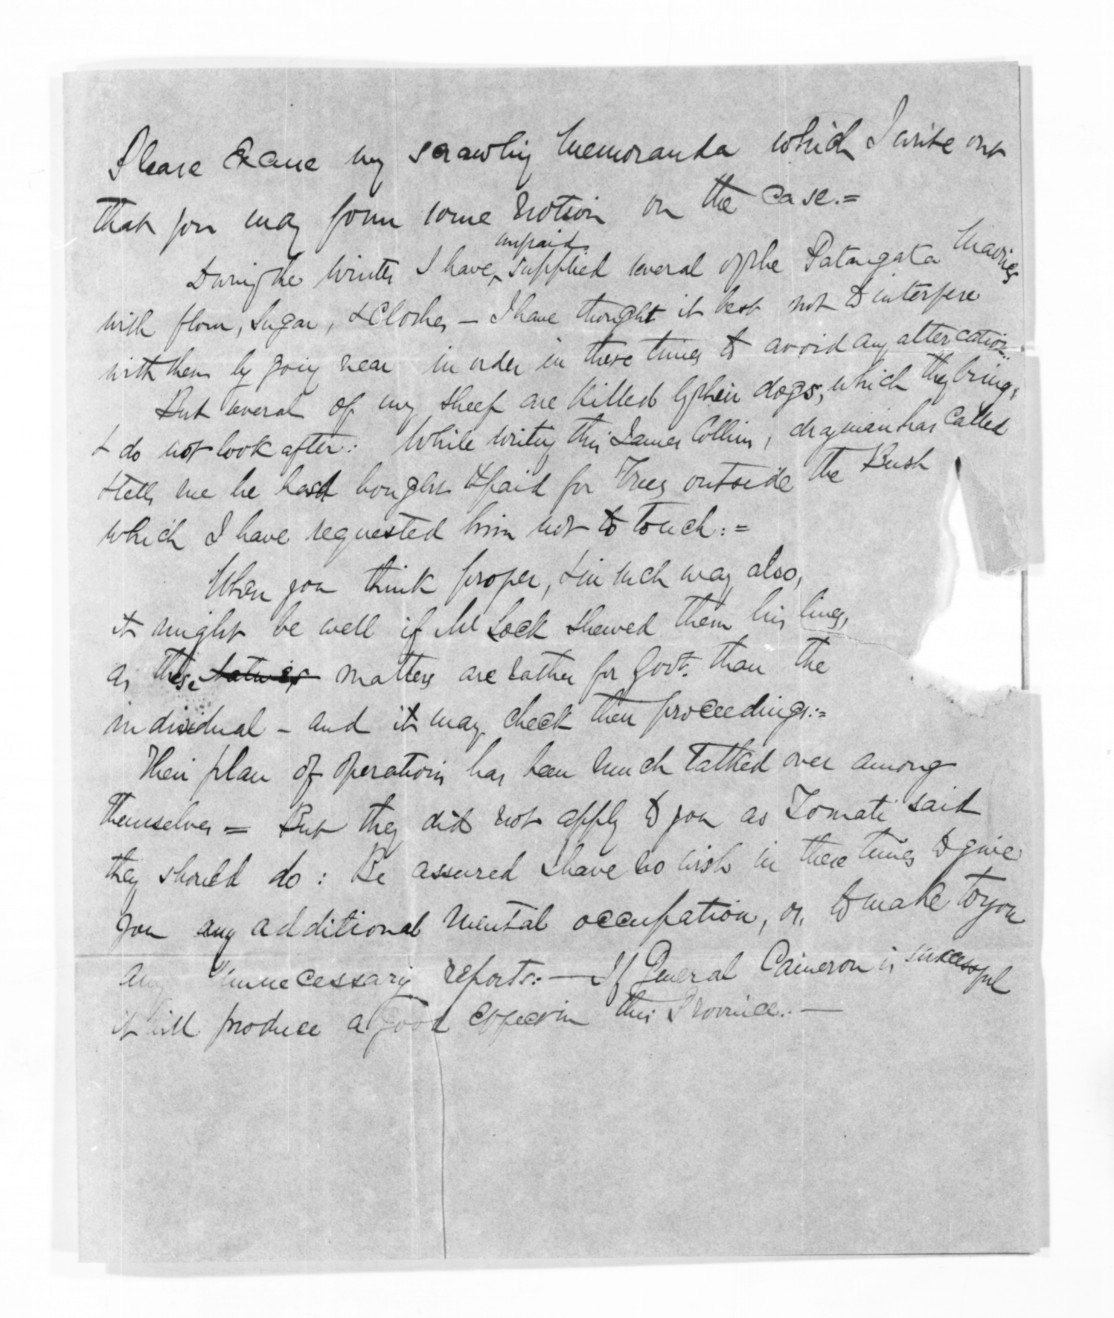 Please Excuse my scrawling Memoranda which I write out
that you may form some Notion on the case.=
unpaid
During the Winter I have supplied several of the Patangata Maories
with flour, Sugar, & Clothes – I have thought it best not to interfere
with them by going near in order in these times to avoid any altercation.
But several of my sheep are killed by their dogs, which they bring,
& do not look after: While writing this James Collins, drayman has called
& tells me he has bought & paid for Trees outside the Bush
which I have requested him not to touch:=
When you think proper, & in such way also,
it might be well if Mr Lock shewed them his lines,
as these matters are rather for Govt. than the
individual – and it may check their proceedings:=
Their plan of operations has been much talked over among
themselves = But they did not apply to you as Tomati said
they should do: Be assured I have no wish in these times to give
you any additional mental occupation, or, to make to you
any unnecessary reports:— If General Cameron is successful
it will produce a good effect in this Province.—